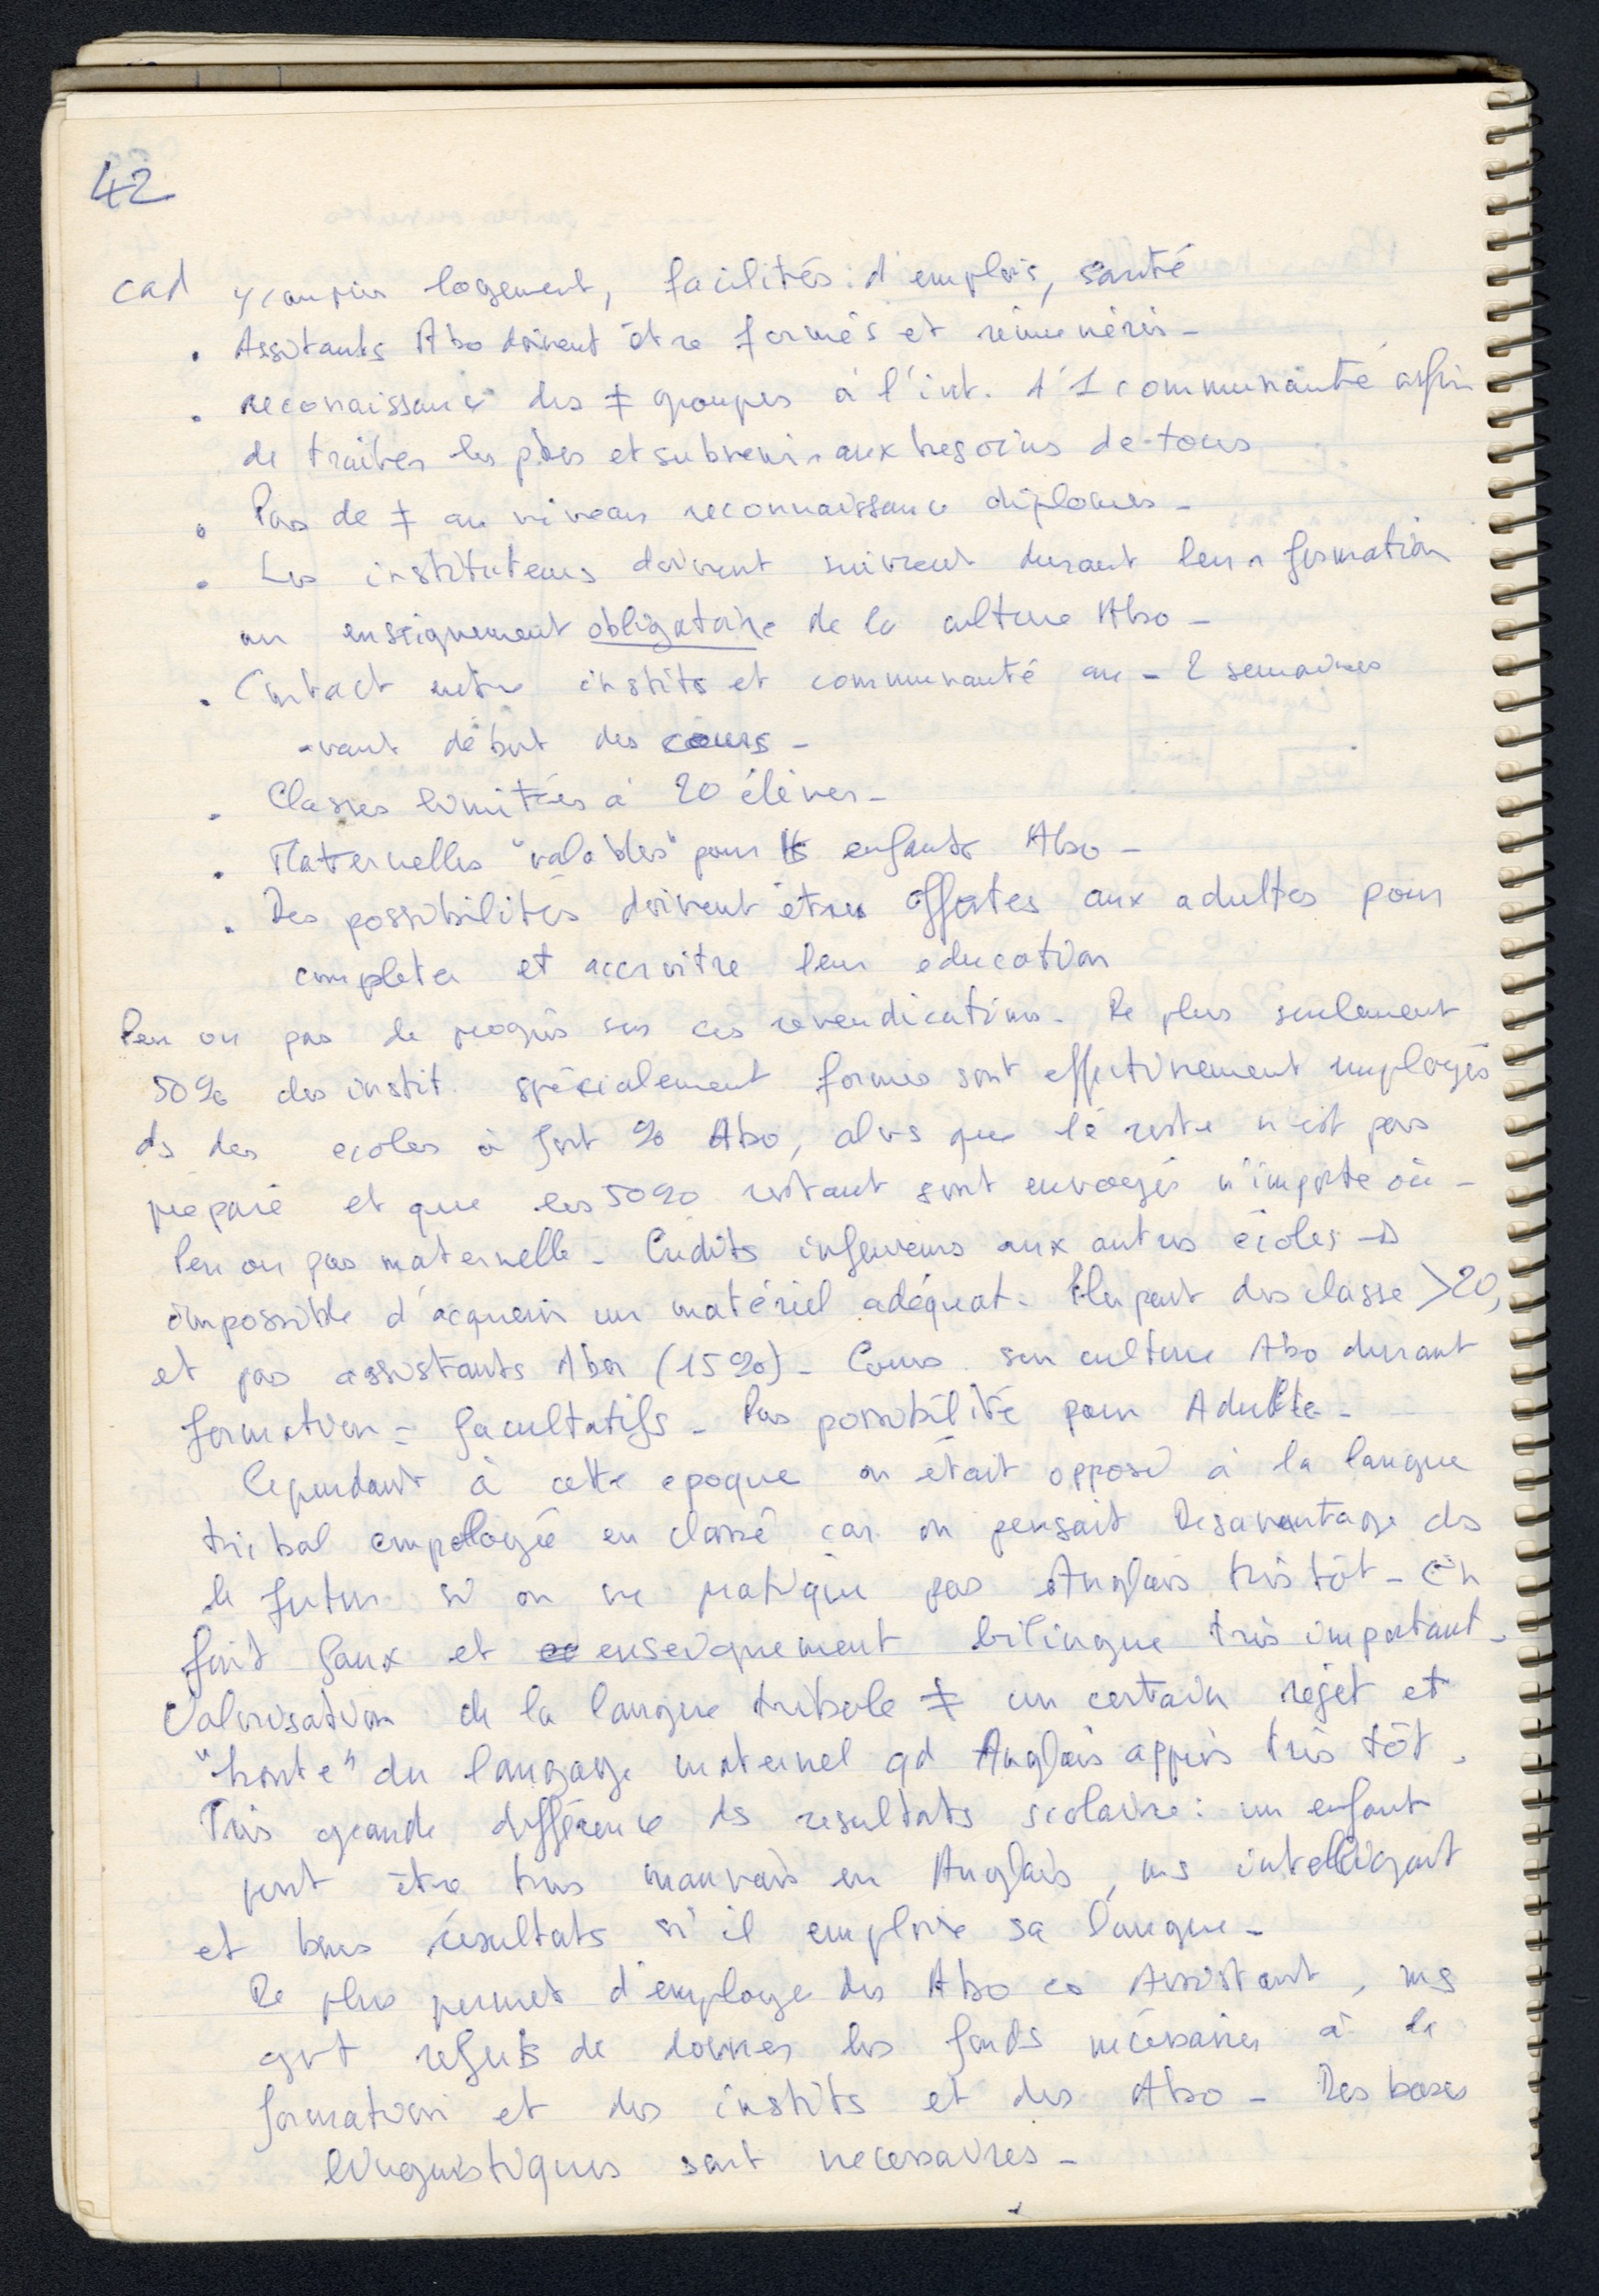 42
cad y compris logement, facilités d'emplois, santé
. Assitants Abo doivent être formés et rémunérés -
. reconaissance des ≠ groupes à l'int. d'1 communauté afin
de traiter les pbes et subvenir aux besoins de tous
. Pas de ≠ au niveau reconnaissance diplomes -
. Les instituteurs doivent suivrent durant leur formation
un enseignement obligatoire de la culture Abo -
. Contact entre instits et communauté au - 2 semaines
avant début des cours -
. Classes limitées à 20 élèves -
. Maternelles "valables" pour ls enfants Abo -
. Des possibilités doivent être offertes aux adultes pour
completer et accroitre leur education
Peu ou pas de progrès sur ces revendications. De plus seulement
50% des instit. spécialement formés sont effectivement employés
ds des ecoles à fort % Abo, alors que le reste n'est pas
préparé et que les 50% restant sont envoyés n'importe où -
Peu ou pas maternelle - Crédits inferieurs aux autres écoles →
impossible d'acquerir un matériel adéquat. Plupart des classe >20,
et pas assistants Abo (15%) - Cours sur culture Abo durant
formation = facultatifs - Pas possibilité pour Adulte -
Cependant à cette epoque on était opposé à la langue
tribal employée en classe car on pensait Desavantage ds
le futur si on ne pratique pas Anglais très tôt - En
fait faux et enseignement bilingue très important -
Valorisation de la langue tribale ≠ un certain rejet et
"honte" du langage maternel qd Anglais appris très tôt.
Très grande différence ds resultats scolaire : un enfant
peut être très mauvais en Anglais, ms intelligent
et bons résultats si il emploie sa langue -
De plus permet d'employe des Abo co Assistant, ms
gvt refuse de donner les fonds nécessaires à la
formation et des instits et des Abo - Des bases
linguistiques sont necessaires -